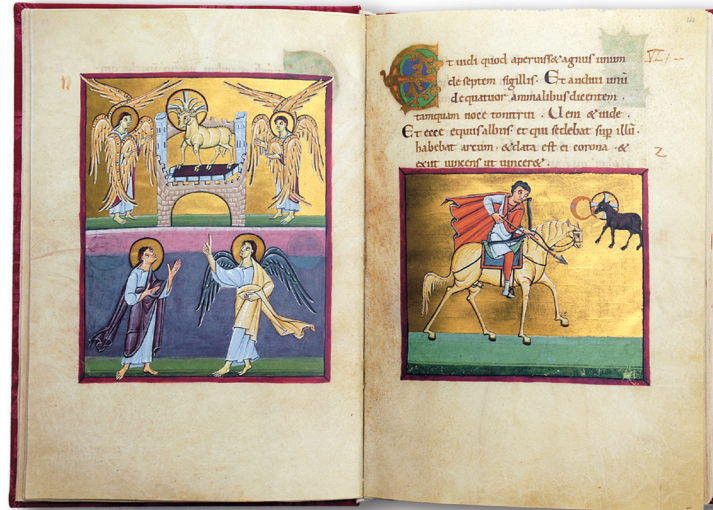 Et uidi quod aperuiss& agnus unum
de septem sigillis. Et audiui unū
de quatuor animalibus dicentem.
tamquam uoce tonitrui. Ueni &uide.
Et ecce equus albus. et qui sedebat sup illū.
habebat arcum. &data est ei corona. &
exiit uincens ut uincer&.
VI
2